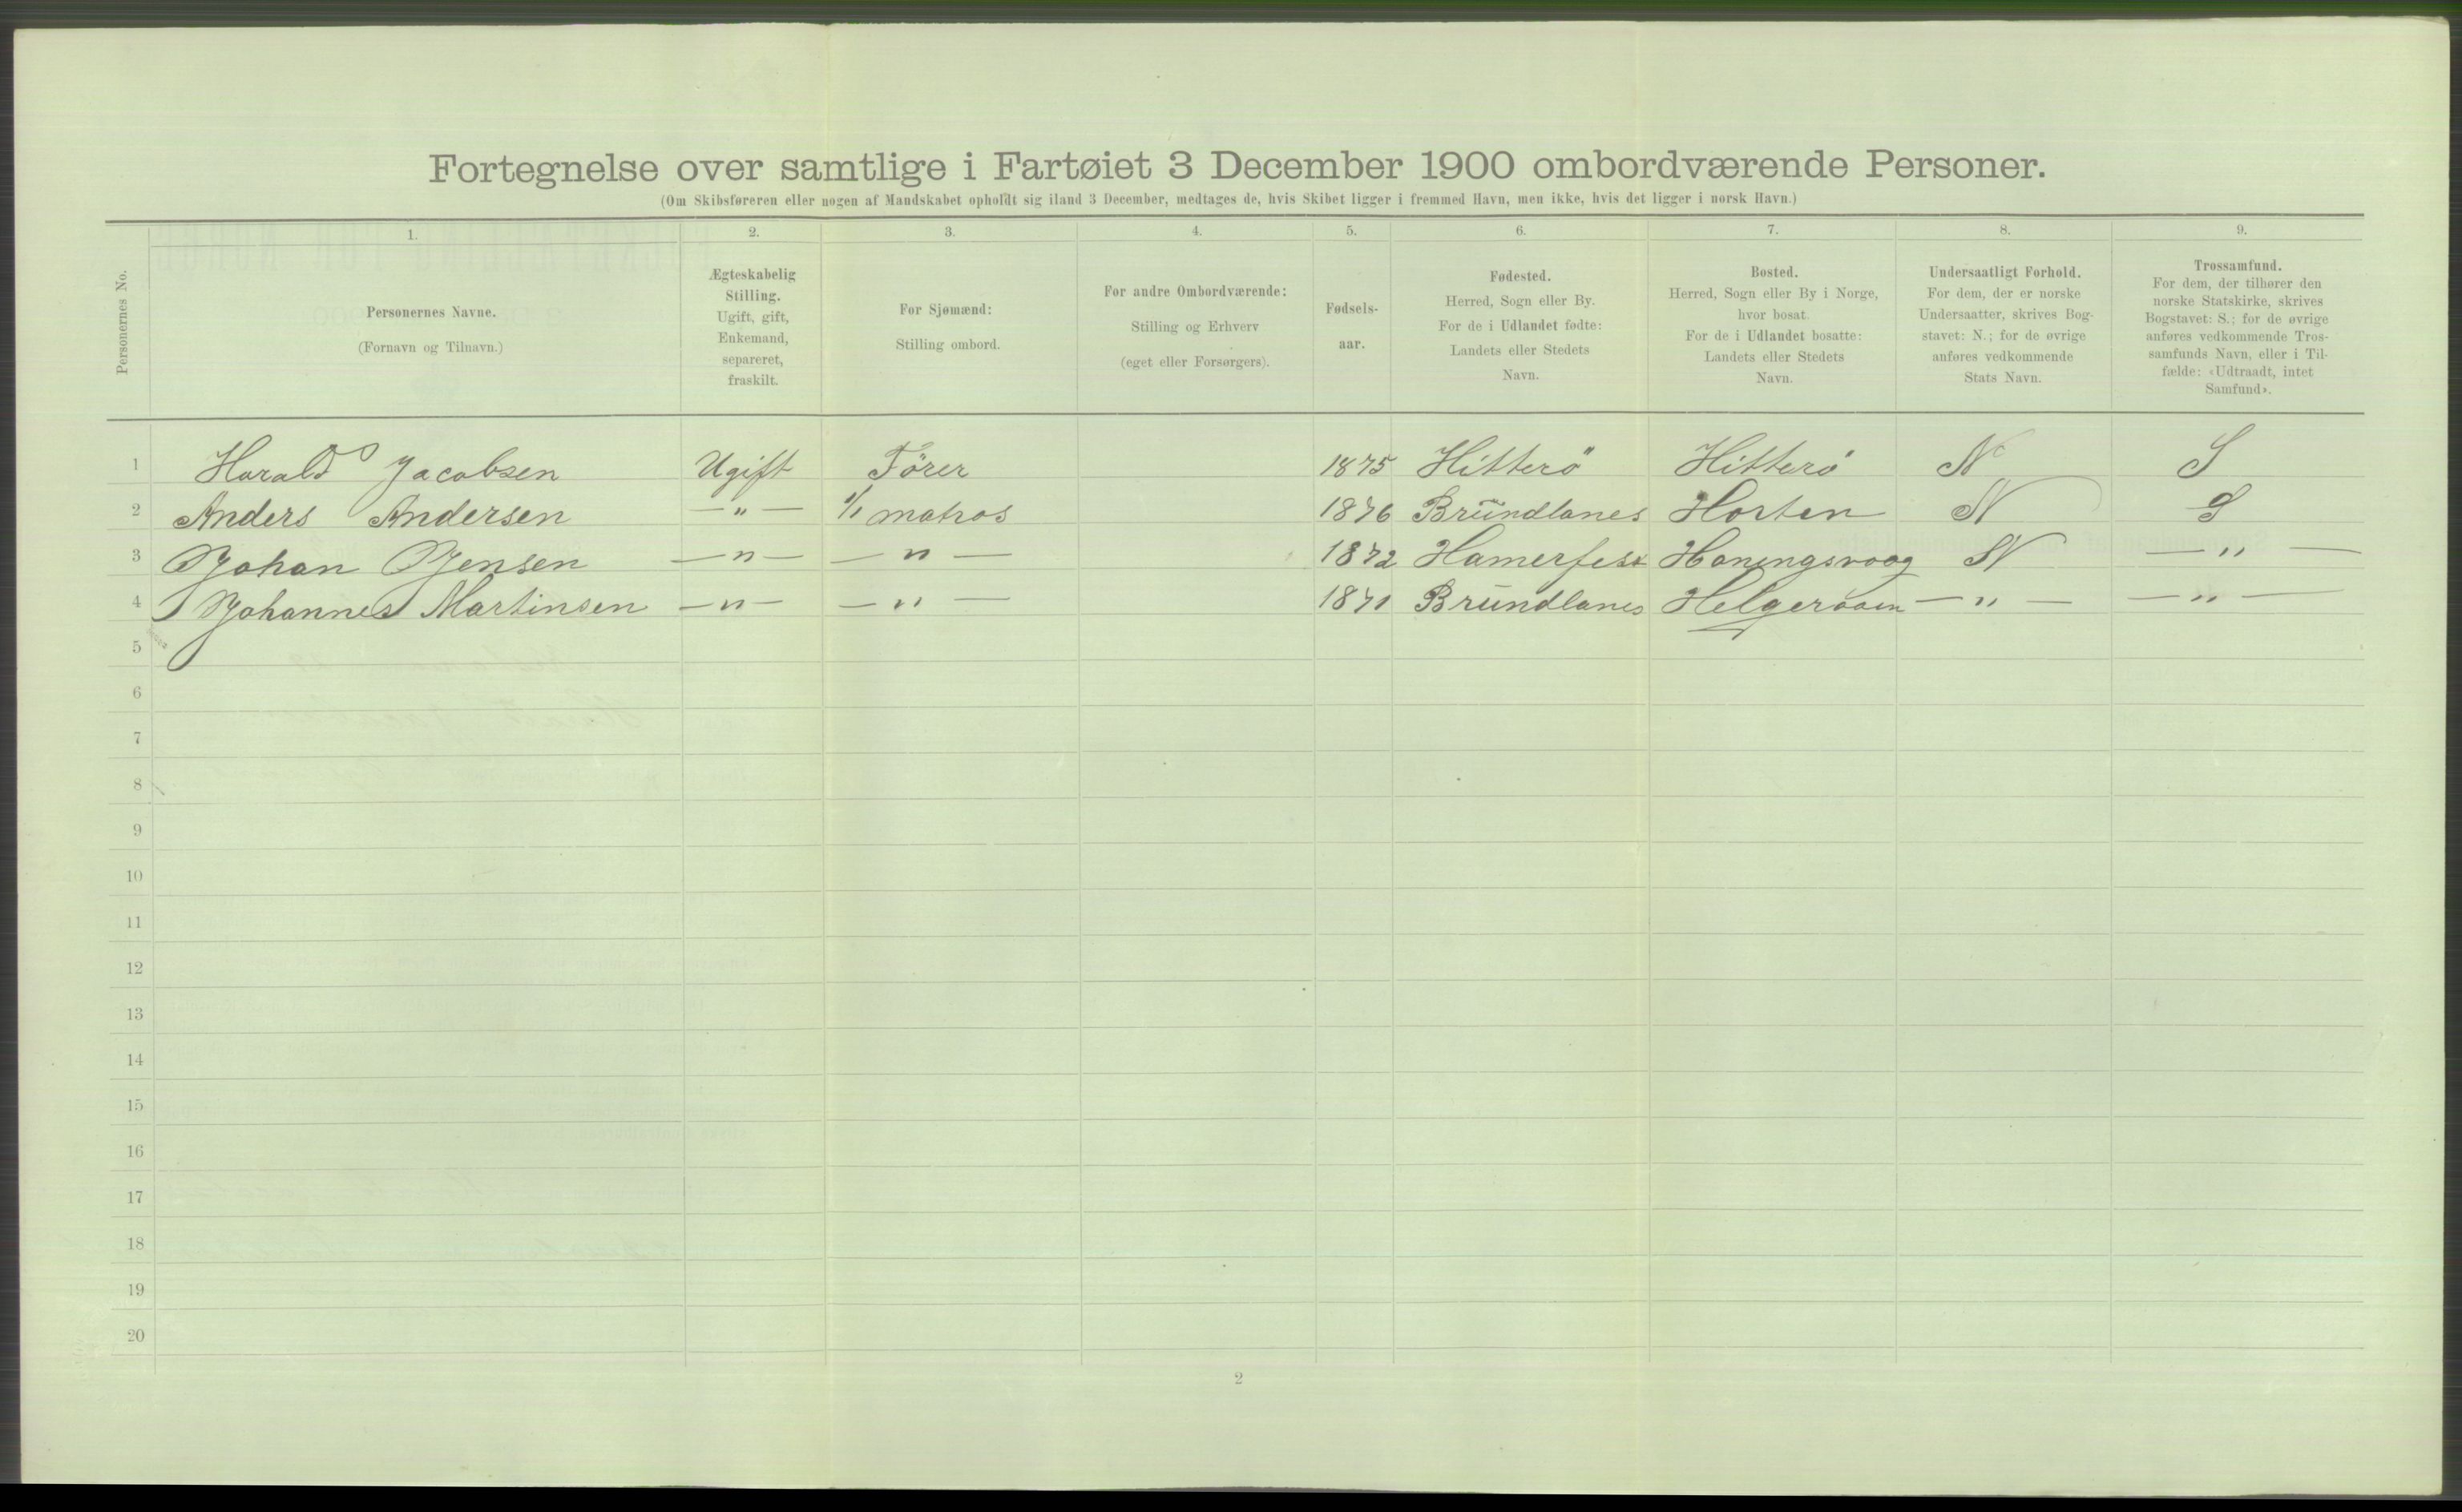 Fortegnelse over samtlige i Fartøiet 3 December 1900 ombordværende Personer.
(Om Skibsføreren eller nogen af Mandskabet opholdt sig iland 3 December, medtages de, hvis Skibet ligger i fremmed Havn, men ikke, hvis det ligger i norsk Havn.)
Personernes No.
1. 2. 3. 4. 5. 6. 7. 8. 9.
Personernes Navne.
(Fornavn og Tilnavn.)
Ægteskabelig
Stilling.
Ugift, gift,
Enkemand,
separeret,
fraskilt.
For Sjømænd:
Stilling ombord.
For andre Ombordværende:
Stilling og Erhverv
(eget eller Forsørgers).
Fødsels-
aar.
Fødested.
Herred, Sogn eller By.
For de i Udlandet fødte:
Landets eller Stedets
Navn.
Bosted.
Herred, Sogn eller By i Norge,
hvor bosat.
For de i Udlandet bosatte:
Landets eller Stedets
Navn.
Undersaatligt Forhold.
For dem, der er norske
Undersaatter, skrives Bog-
stavet: N.; for de øvrige
anføres vedkommende
Stats Navn.
Trossamfund.
For dem, der tilhører den
norske Statskirke, skrives
Bogstavet: S.; for de øvrige
anføres vedkommende Tros-
samfunds Navn, eller i Til-
fælde: «Udtraadt, intet
Samfund».
1 Harald Jacobsen Ugift Förer 1875 Hitterö Hitterö N S
2 Anders Andersen —„— 1/1 matros 1876 Bründlanes Horten N S
3 Johan Jensen —„— —„— 1872 Hamerfest Honingsvaag N —„—
4 Johannes Martinsen —„— —„— 1871 Bründlanes Helgeroaen —„— —„—
5
6
7
8
9
10
11
12
13
14
15
16
17
18
19
20
2